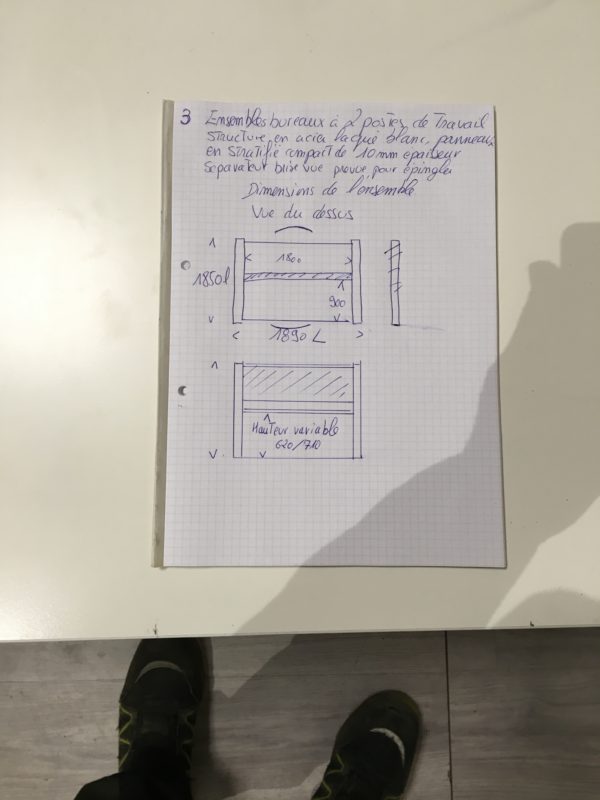 3 Ensembles bureaux à 2 postes de travail
structure en acier laqué blanc, panneaux
en stratifié compact de 10mm epaisseur
Separateur brise vue prevue pour épingler
Dimensions de l'ensemble
Vue du dessus
1800
1850 l
900
1890 L
Hauteur variable
620/710